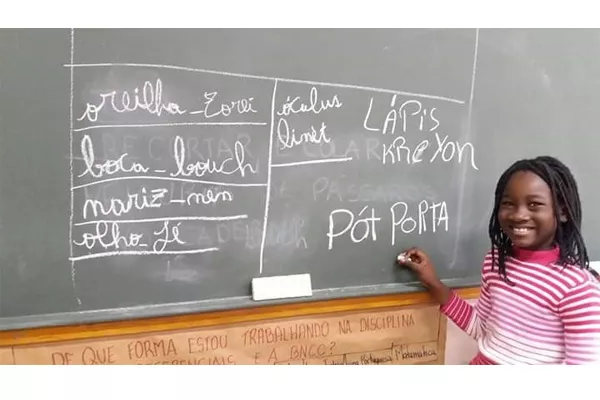 orelha - Zorei
boca - bouch
nariz - nen
olho - Jé
óculus
linèt
LÁPis
KREYON
PÓt PORTA
DE QUE FORMA ESTOU TRABALHANDO NA DISCIPLINA
REFERENCIAIS E A BNCC?
Matemática